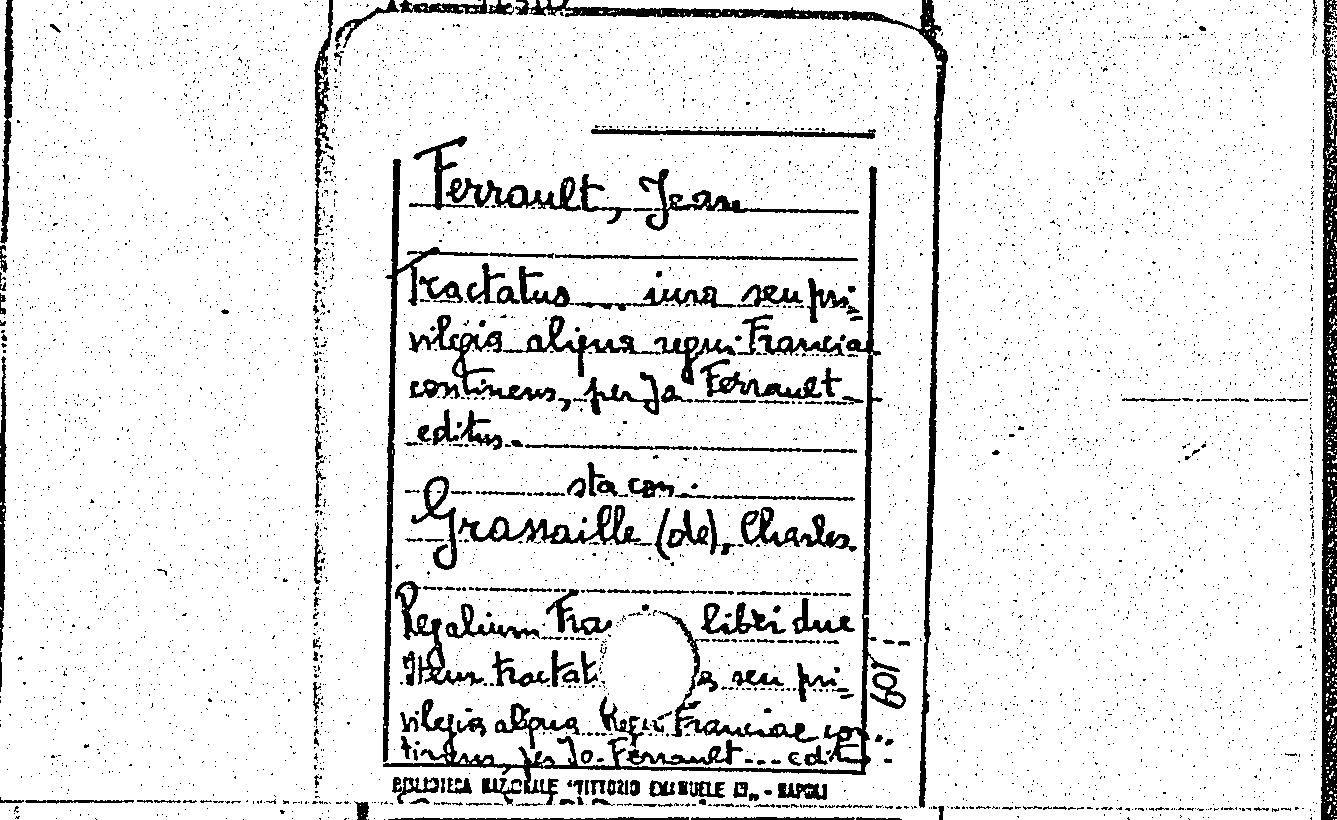 Ferrault, Jean
Tractatus ... iura seu pri=
vilegia aliqua regni Franciae
continens, per Jo Ferrault
editus.
sta con.
Grassaille (de), Charles.
Regalium Fra libri duo
Item tractat seu pri=
vilegia aliqua Regni Franciae con..
tinens, per Jo. Ferrault ... editus
109
BIBLIOTECA NAZIONALE "VITTORIO EMANUELE III" - NAPOLI